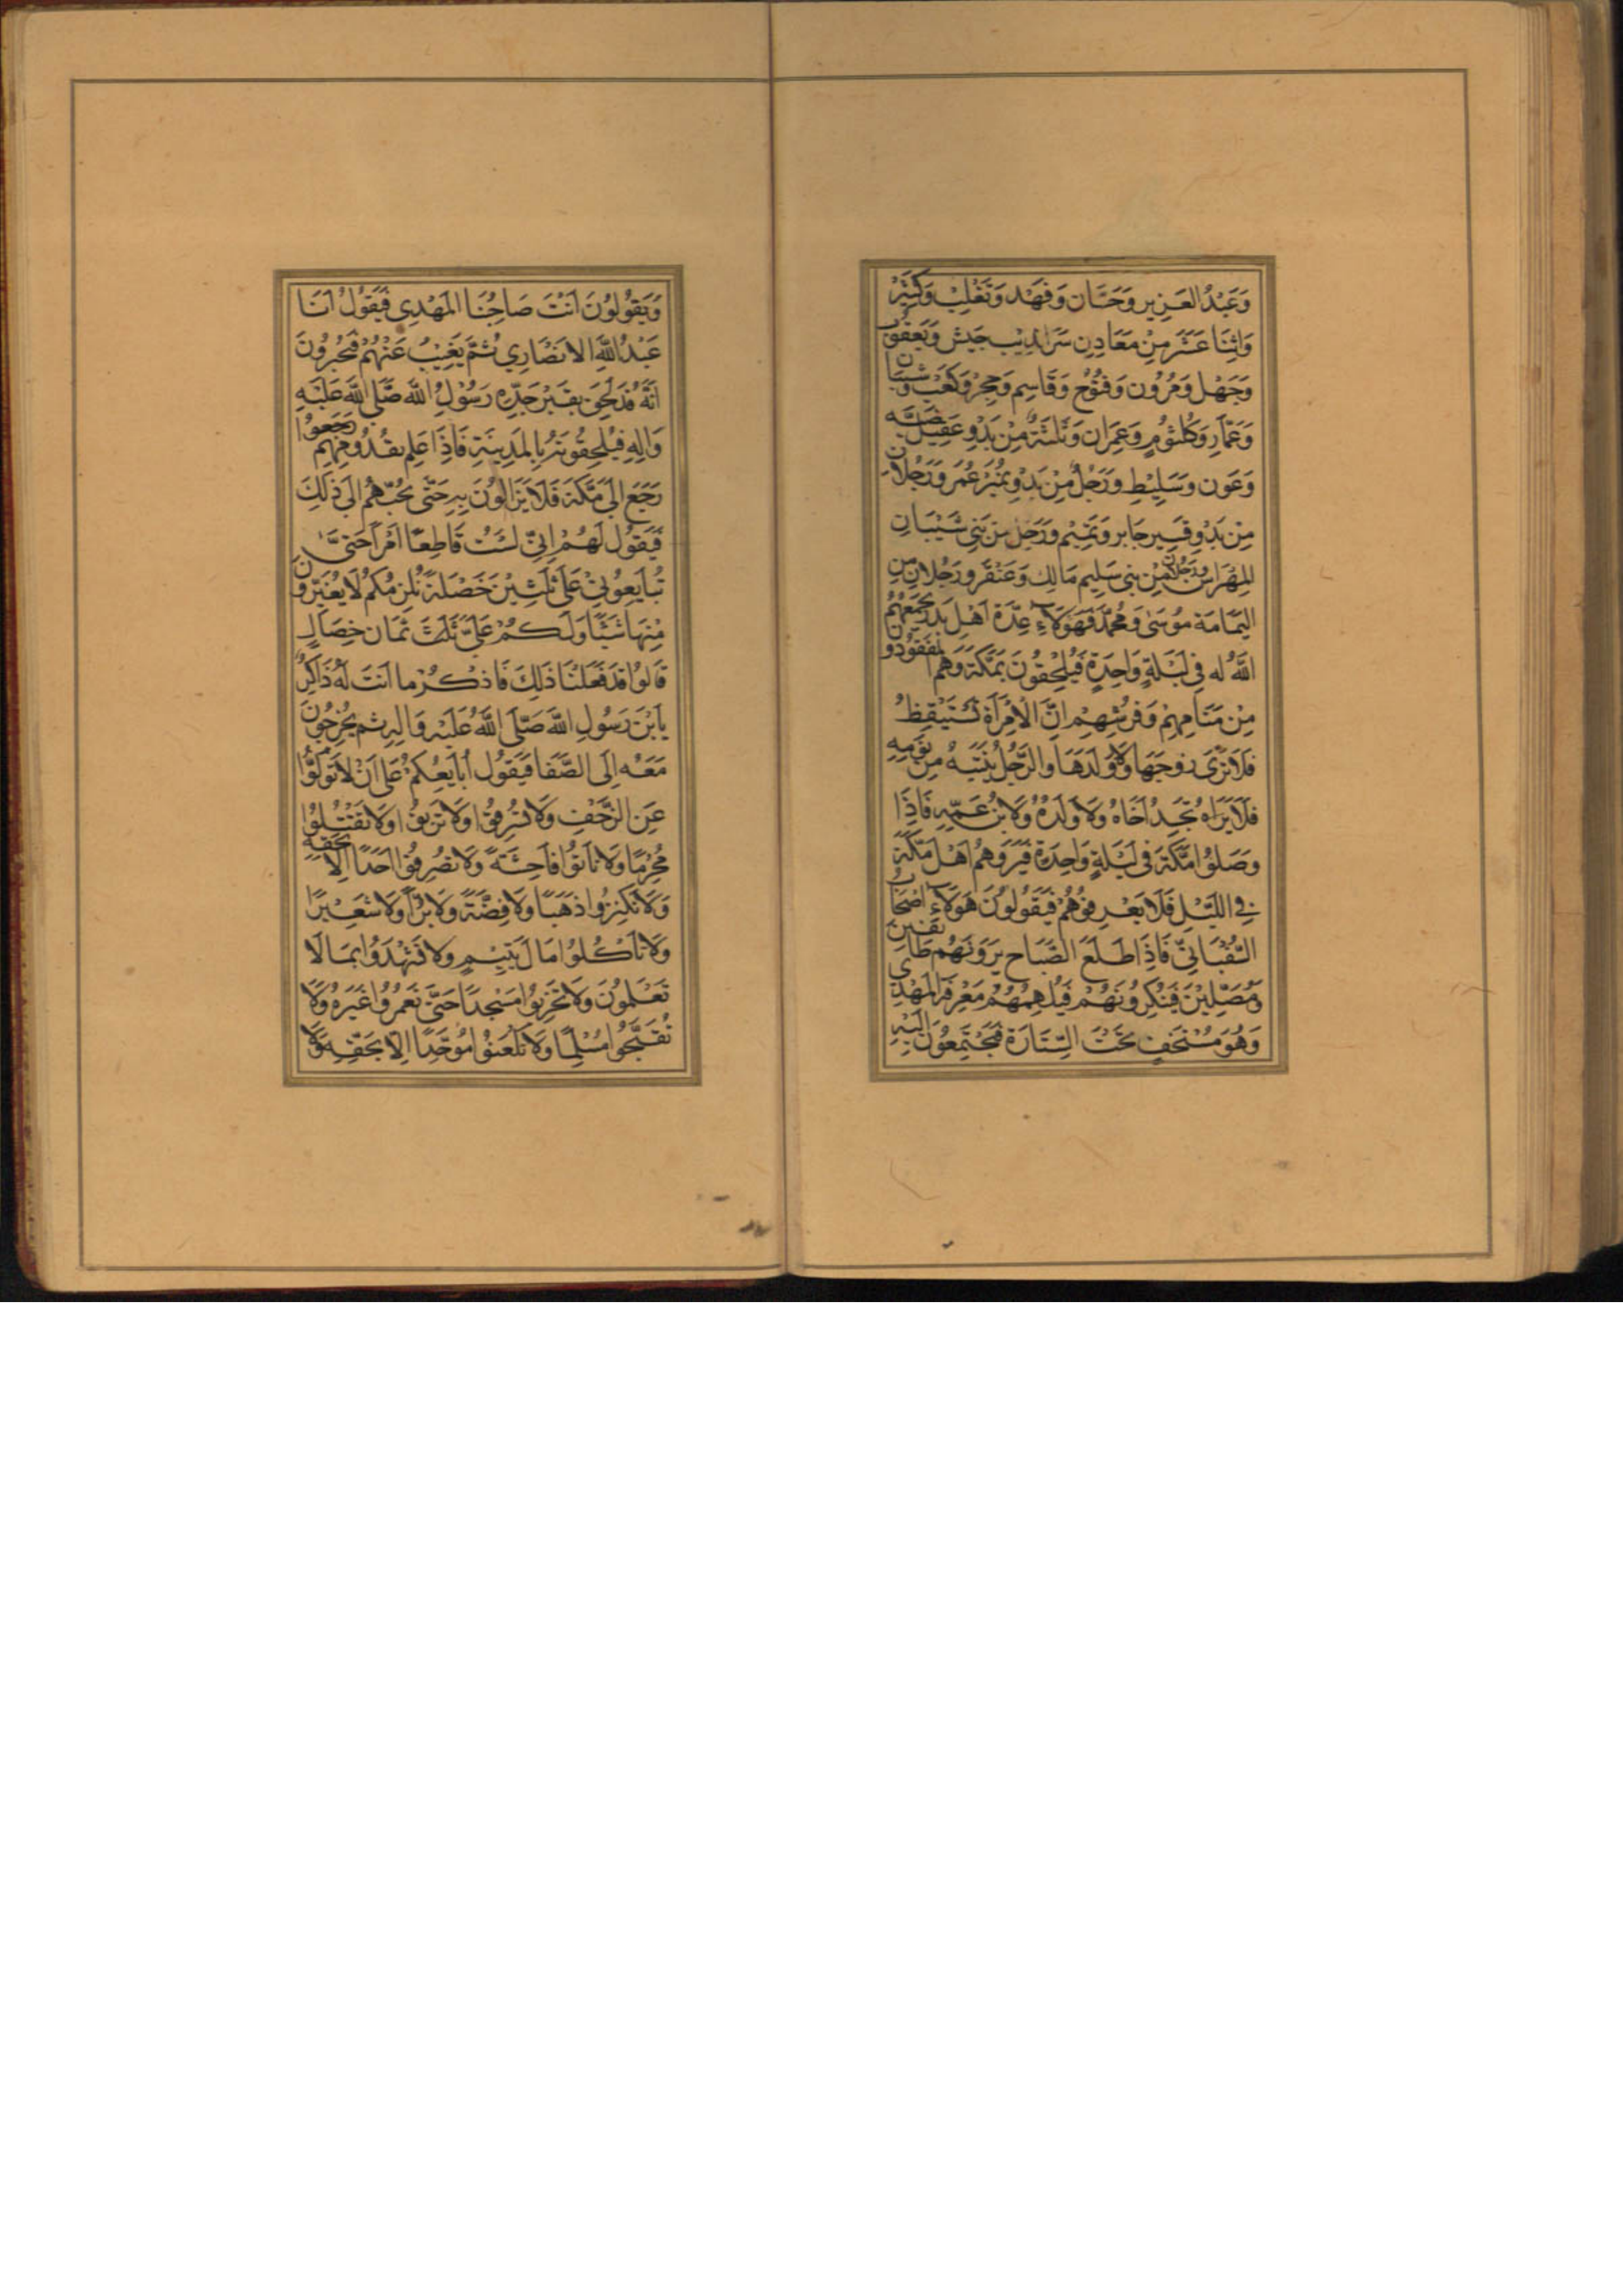 وَعَبْدُ العَزِيزِ وَحَسَّان وَفَهْد وَتَغْلِبْ وَكَثِيرُ
وَاثْنَا عَشَرَ مِنْ مَعَادِنِ سَرَانْدِيبْ جَيش وَيَعقُوبُ
وَجَهْل وَمَرُون وَفُتُوْح وَقَاسِم وَحِجْر وَكَعْب وَشَيْبَان
وَعَمَّار وَكُلْثُومٍ وَعِمْرَان وَثَلَثَةٌ مِنْ بَدْوِ عَقِيل
وَعَوْن وَسَلِيْطٍ وَرَجُلٌ مِنْ بَدْوِ نُمَيْر عُمَر وَرَجُلَانِ
مِنْ بَدْوِ قَسِير جَابِر وَتَمِيْم وَرَجُل مِن بَنِي شَيْبَانِ
المِهْرَاسْ وَرَجُلَانِ مِنْ بَنِي سَلِيم مَالِك وَعَنْقَر وَرَجُلَانِ مِنَ
اليَمَامَة مُوسَى وَمُحَمَّد فَهَؤلَاءِ عِدَّةُ اَهْلِ بَدْر يَجْمَعُهُمُ
اللهُ لَه فِي لَيْلَةٍ وَاحِدَةٍ فَيُلْحِقُونَ بِمَكَّةَ وَهُمْ المَفْقُودُونَ
مِنْ مَنَامِهِمْ وَفُرُشِهِمْ اِنَّ الاِمْرَأَةَ تَسْتَيْقِظُ
فَلَا تَرَى زَوْجَهَا وَلَا وَلَدَهَا وَالرَّجُلُ يَنْتَبِهُ مِنْ نَوْمِهِ
فَلَا يَرَاه تَجِدُ اَخَاهُ وَلَا وَلَدَهُ وَلَا بْنَ عَمِّهِ فَاِذَا
وَصَلُوْا مَكَّةَ فِي لَيْلَةٍ وَاحِدَةٍ فَيَرَوْهُمْ اَهْلُ مَكَّةَ
فِي اللَّيْلِ فَلَا يَعْرِفُوْهُمْ فَيَقُولُوْنَ هَوُلَاءِ اَصْحَابُ
السُّفْيَانِيِّ فَاِذَا طَلَعَ الصَّبَاحِ يَرَوْنَهُم طَائِفِينَ
وَمُصَلِّيْنَ فَيُنْكِرُوْنَهُمْ فَيُلْهِمُهُمْ مَعْرِفَةَ المَهْدِي
وَهُوَ مُسْتَخْفٍ تَحْتَ السِّتَارَةِ فَيَجْتَمِعُوْنَ اِلَيْهِ
وَيَقُوْلُوْنَ اَنْتَ صَاحِبُنَا المَهْدِي فَيَقُوْلُ اَنَا
عَبْدُ اللهِ الاَنْصَارِي ثُمَّ يَغِيْبُ عَنْهُمْ فَيُخْبِرُوْنَ
اَنَّهُ قَدْ لَحِقَ بِقَبْرِ جَدِّهِ رَسُوْلِ اللهِ صَلَّى اللهُ عَلَيْهِ
وَالِهِ فَيُلْحِقُونَهُ بِالمَدِيْنَةِ فَاِذَا عَلِمَ بِقُدُومِهِمْ
رَجَعَ اِلَى مَكَّةَ فَلَا يَزَالُوْنَ بِهِ حَتَّى يُجِبَهُمْ اِلَى ذَلِكَ
فَيَقُوْلُ لَهُمْ اِنِّي لَسْتُ قَاطِعًا اَمْرًا حَتَّى
تُبَايِعُوْنِي عَلَى ثَلَثِيْنَ خَصْلَةً تُلْزِمُكُمْ لَا تُغَيِّرُونَ
مِنْهَا شَيْئًا وَلَكُمْ عَلَيَّ ثَلَثَ ثَمَان خِصَالٍ
قَالُوْا قَدْ فَعَلْنَا ذَلِكَ فَاذْكُرْ مَا اَنْتَ لَهُ ذَاكِرٌ
يَا بْنَ رَسُوْلِ اللهِ صَلَّى اللهُ عَلَيْهِ وَالِهِ ثم يَخْرُجُوْنَ
مَعَهُ اِلَى الصَّفَا فَيَقُوْلُ اُبَايِعُكُمْ عَلَى اَنْ لَا تُوَلُّوْا
عَنِ الزَّحْفِ وَلَا تَسْرِقُوْا وَلَا تَزْنُوْا وَلَا تَقْتُلُوْا
مُحْرِمًا وَلَا تَأْتُوْا فَاحِشَةً وَلَا تَضْرِبُوْا اَحَدًا اِلَّا بِحَقِّهِ
وَلَا تَكْنِزُوْا ذَهَبًا وَلَا فِضَّةً وَلَا بُرًّا وَلَا شَعِيْرًا
وَلَا تَأْكُلُوْا مَالَ يَتِيْمٍ وَلَا تَشْهَدُوْا بِمَا لَا
تَعْلَمُوْنَ وَلَا تُخَرِّبُوْا مَسْجِدًا حَتَّى تَعْمُرُوْا غَيْرَهُ وَلَا
تُقَبِّحُوْا مُسْلِمًا وَلَا تَلْعَنُوْا مُوَحِّدًا اِلَّا بِحَقِّهِ وَلَا